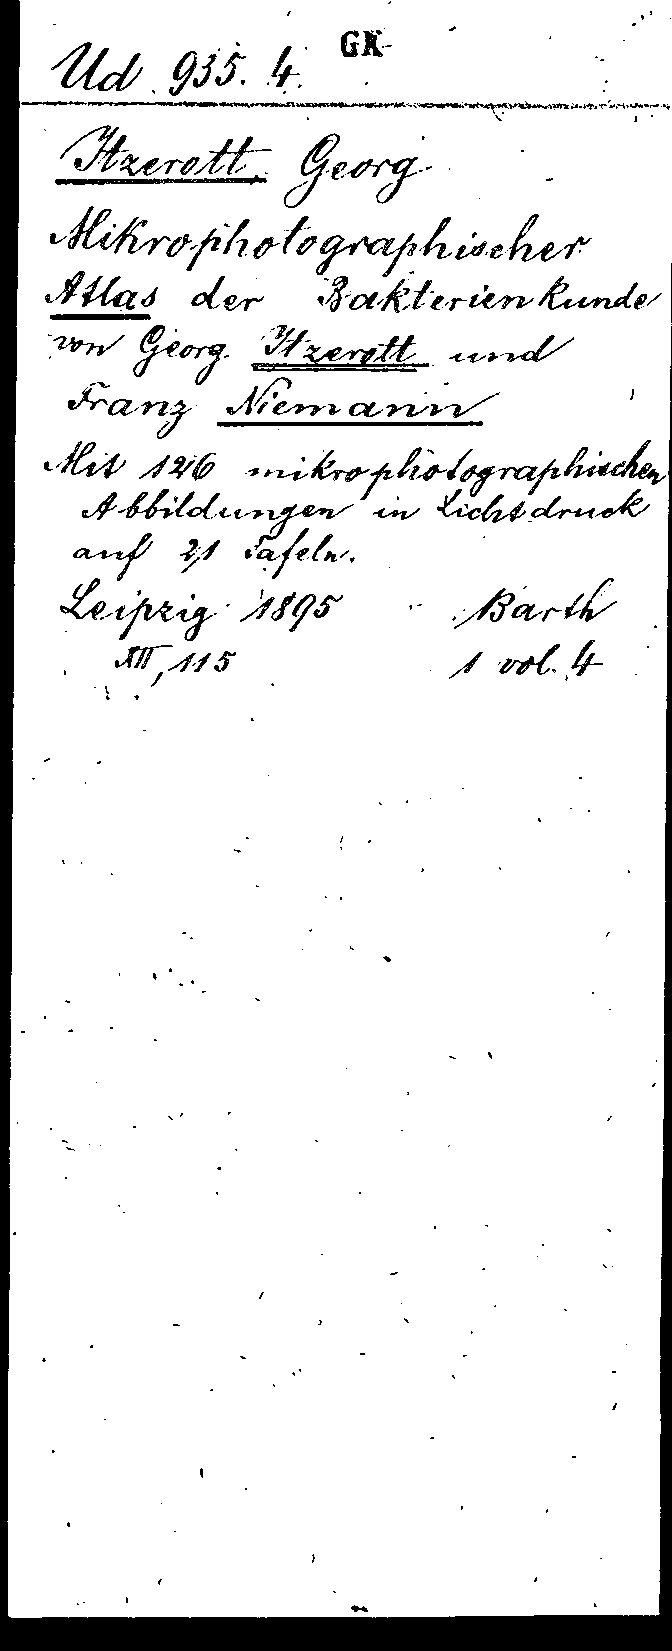 GK
Ud 935. 4.
Itzerott, Georg
Mikrophotographischer
Atlas der Bakterienkunde
von Georg Itzerott und
Franz Niemann
Mit 126 mikrophotographischen
Abbildungen in Lichtdruck
auf 21 Tafeln.
Leipzig 1895 Barth
XII, 115 1 vol. 4